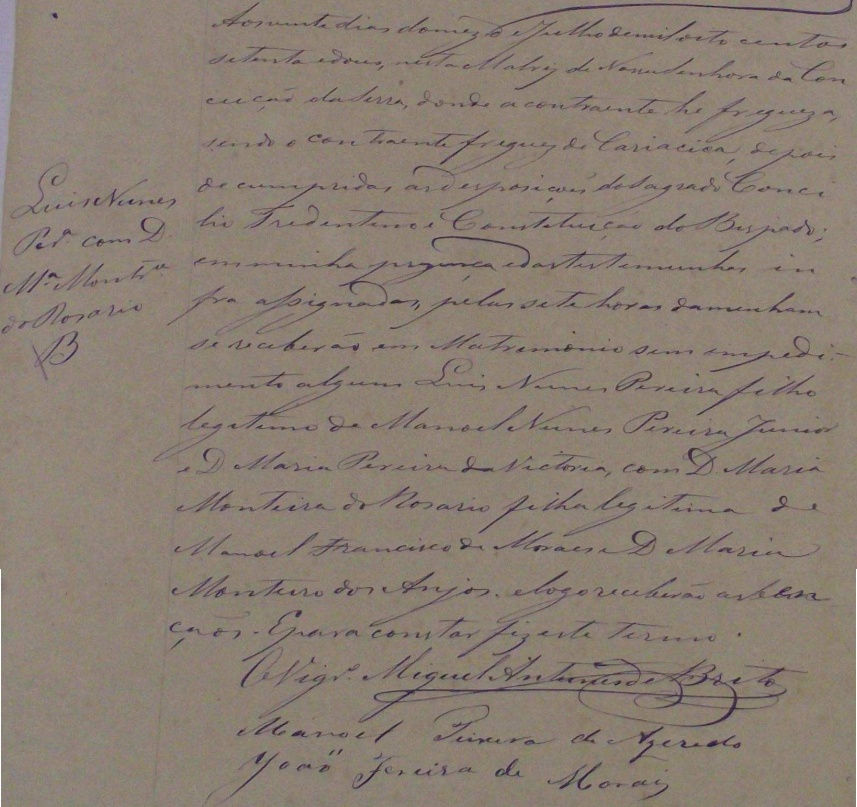 Luis Nunes
Per.ª com D.
M.ª Montr.ª
do Rosario
B
Aos vinte dias do mez de Julho de mil oito centos
setenta e dous, nesta Matriz de Nossa Senhora da Con
ceição da Serra, donde a contraente he fregueza,
sendo o contraente freguez de Cariacica, depois
de cumpridas as desposições do Sagrado Conci
lio Tredentino e Constituição do Bispado;
em minha prezença e das testemunhas in
fra assignadas, pelas sete horas da menham
se receberão em Matrimonio sem empedi-
mento algum Luis Nunes Pereira filho
legitimo de Manoel Nunes Pereira Junior
e D Maria Pereira da Victoria, com D Maria
Monteira do Rosario filha legitima de
Manoel Francisco de Moraes e D Maria
Monteiro dos Anjos. e logo receberão as ben
çaos. E para constar fiz este termo.
O Vigr.º Miguel Antunes de Brito
Manoel Pereira de Azeredo
João Ferreira de Morais